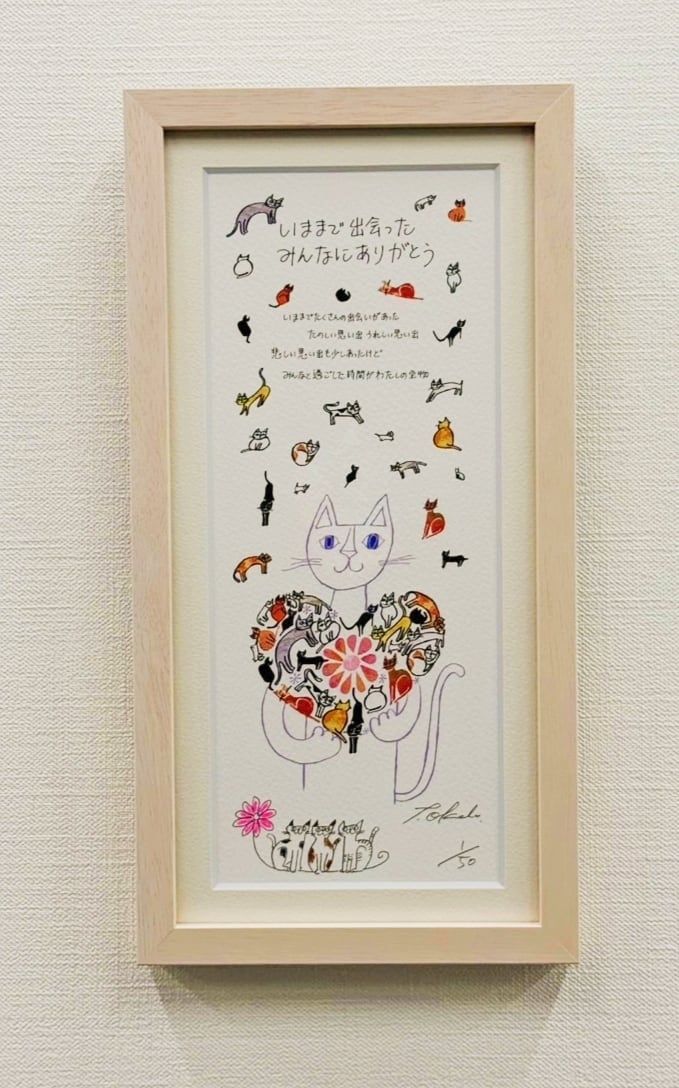 いままで出会った
みんなにありがとう
いままでたくさんの出会いがあった
たのしい思い出 うれしい思い出
悲しい思い出も少しあったけど
みんなと過ごした時間がわたしの宝物
1/50